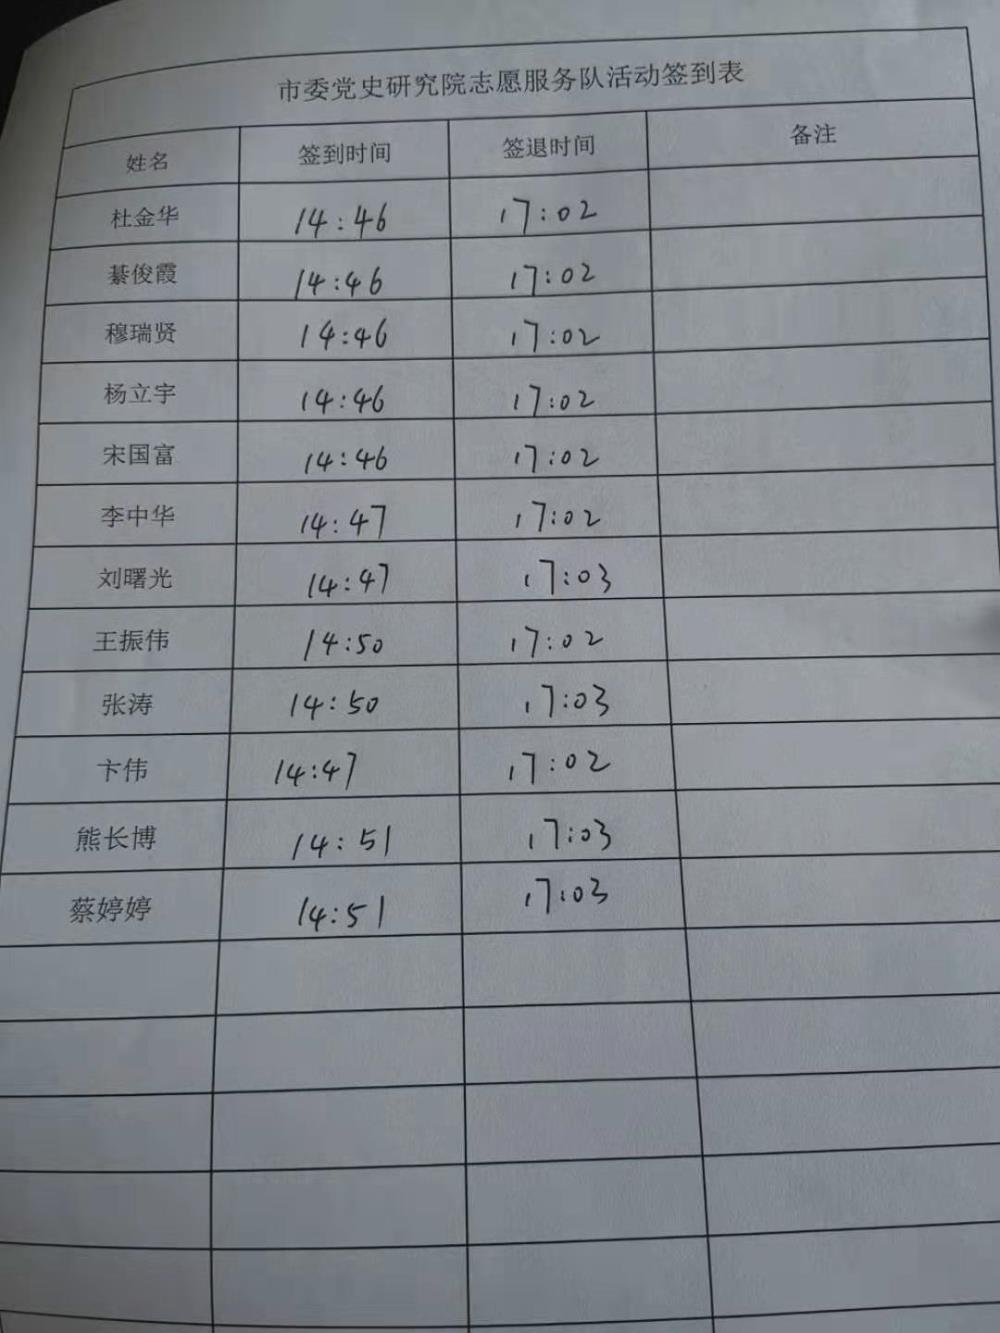 市委党史研究院志愿服务队活动签到表
姓名 签到时间 签退时间 备注
杜金华 14:46 17:02
綦俊霞 14:46 17:02
穆瑞贤 14:46 17:02
杨立宇 14:46 17:02
宋国富 14:46 17:02
李中华 14:47 17:02
刘曙光 14:47 17:03
王振伟 14:50 17:02
张涛 14:50 17:03
卞伟 14:47 17:02
熊长博 14:51 17:03
蔡婷婷 14:51 17:03